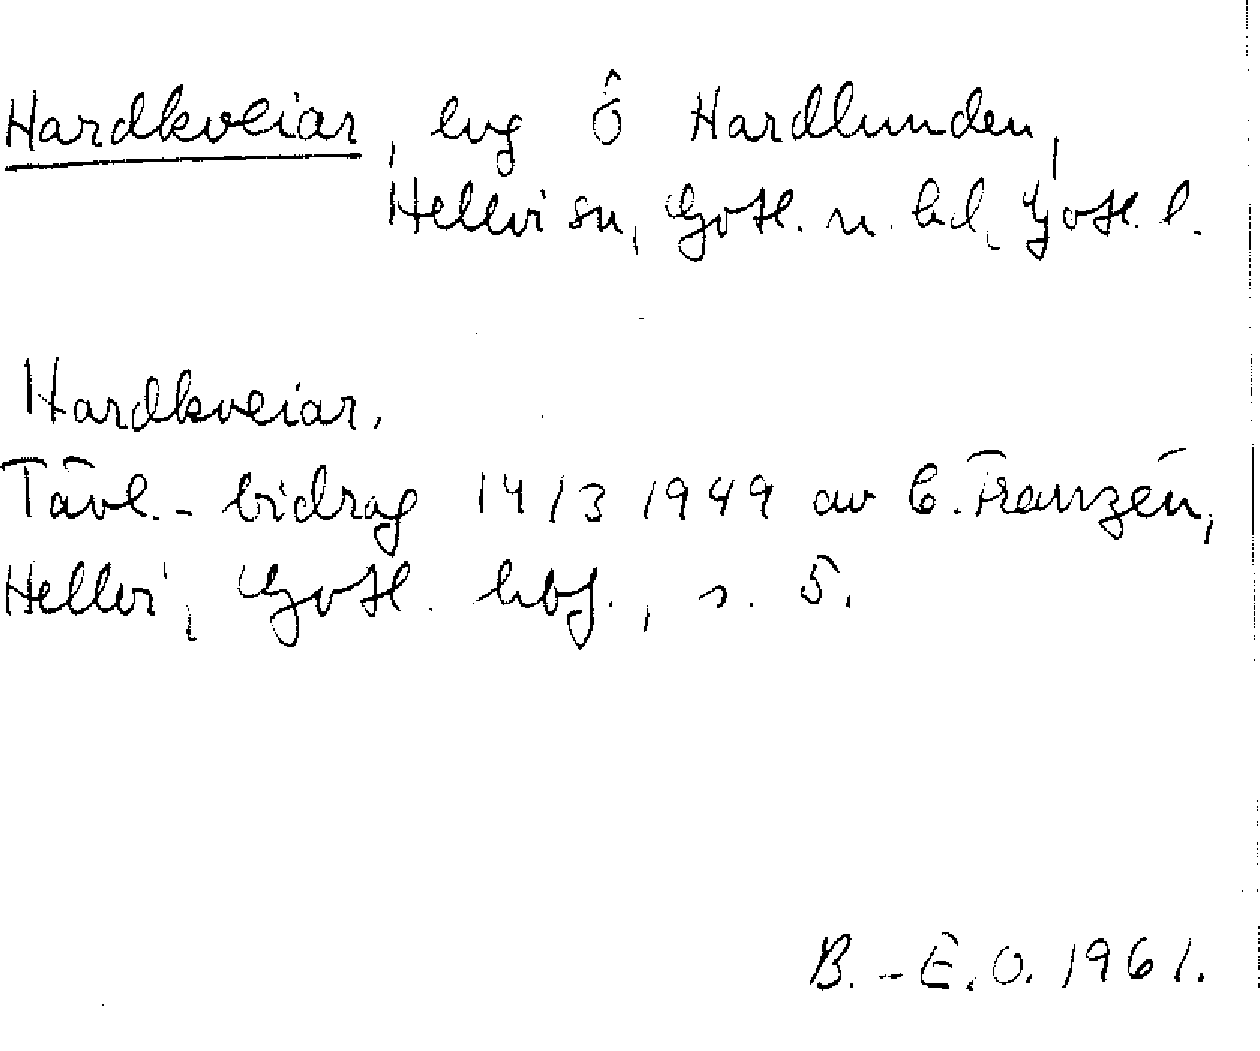 Hardkveiar, lug Ö Hardlunden,
Hellvi sn, Gotl. n. hd, Gotl. l.
Hardkveiar.
Tävl.-bidrag 14/3 1949 av C. Franzén,
Hellvi, Gotl. hbf., s. 5.
B.-E. O. 1961.